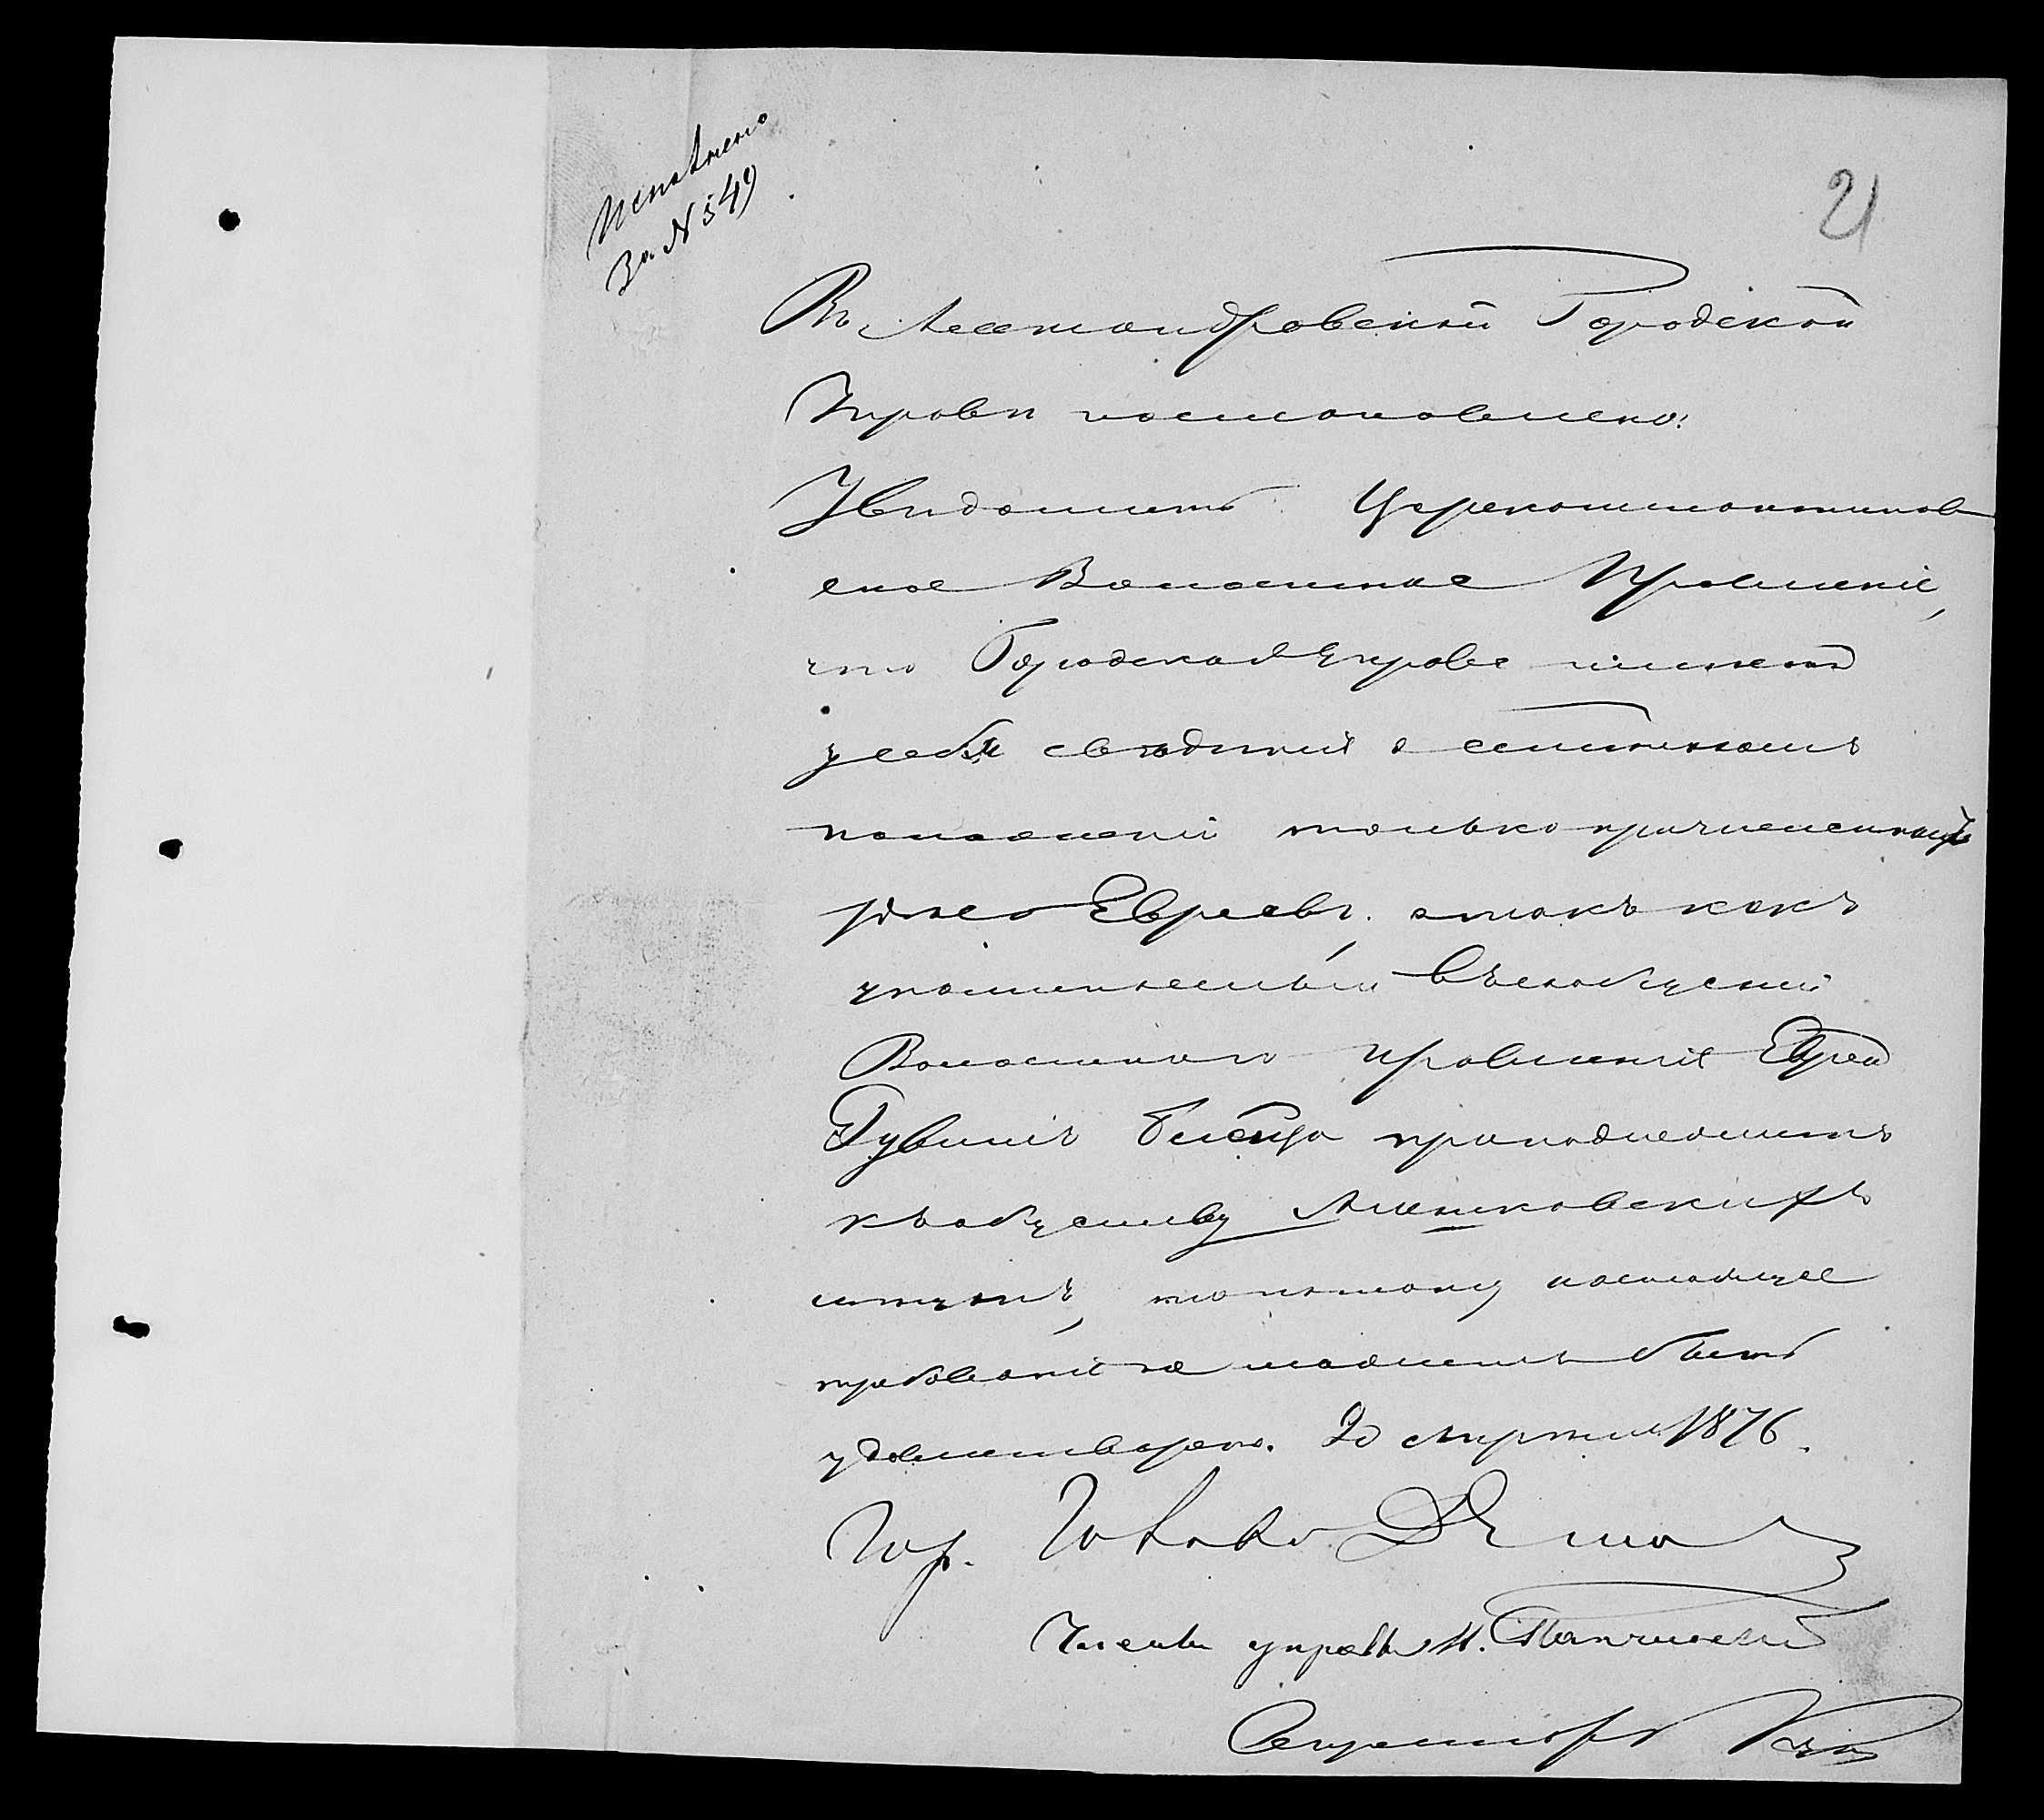 Исполнено
За № 549
21
Въ Александровской Городской
Управѣ постановлено:
Увѣдомить Цареконстантинов
ское Волостное Правленіе,
что Городская Управа имѣетъ
у себя свѣдѣнія о семейномъ
положеніи только причисленныхъ
Евреевъ, а такъ какъ
упоминаемый въ сообщеніи
Волостного Правленія Еврей
принадлежитъ
къ обществу
потому настоящее
требованіе не можетъ быть
удовлетворено. 20 Апрѣля 1876.
Гор. Голова
Членъ управы И.
Секретарь